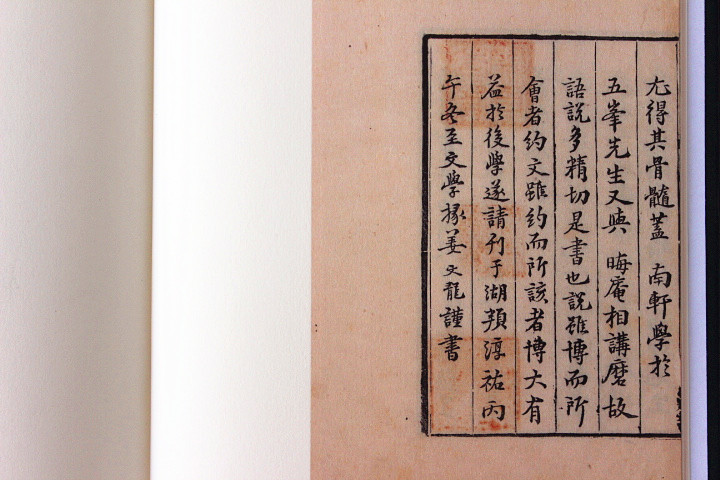 尤得其骨髓蓋 南軒學於
五峯先生又與 晦庵相講磨故
語說多精切是書也說雖博而所
會者約文雖約而所該者博大有
益於後學遂請刋于湖頖淳祐丙
午冬至文學掾姜文龍謹書